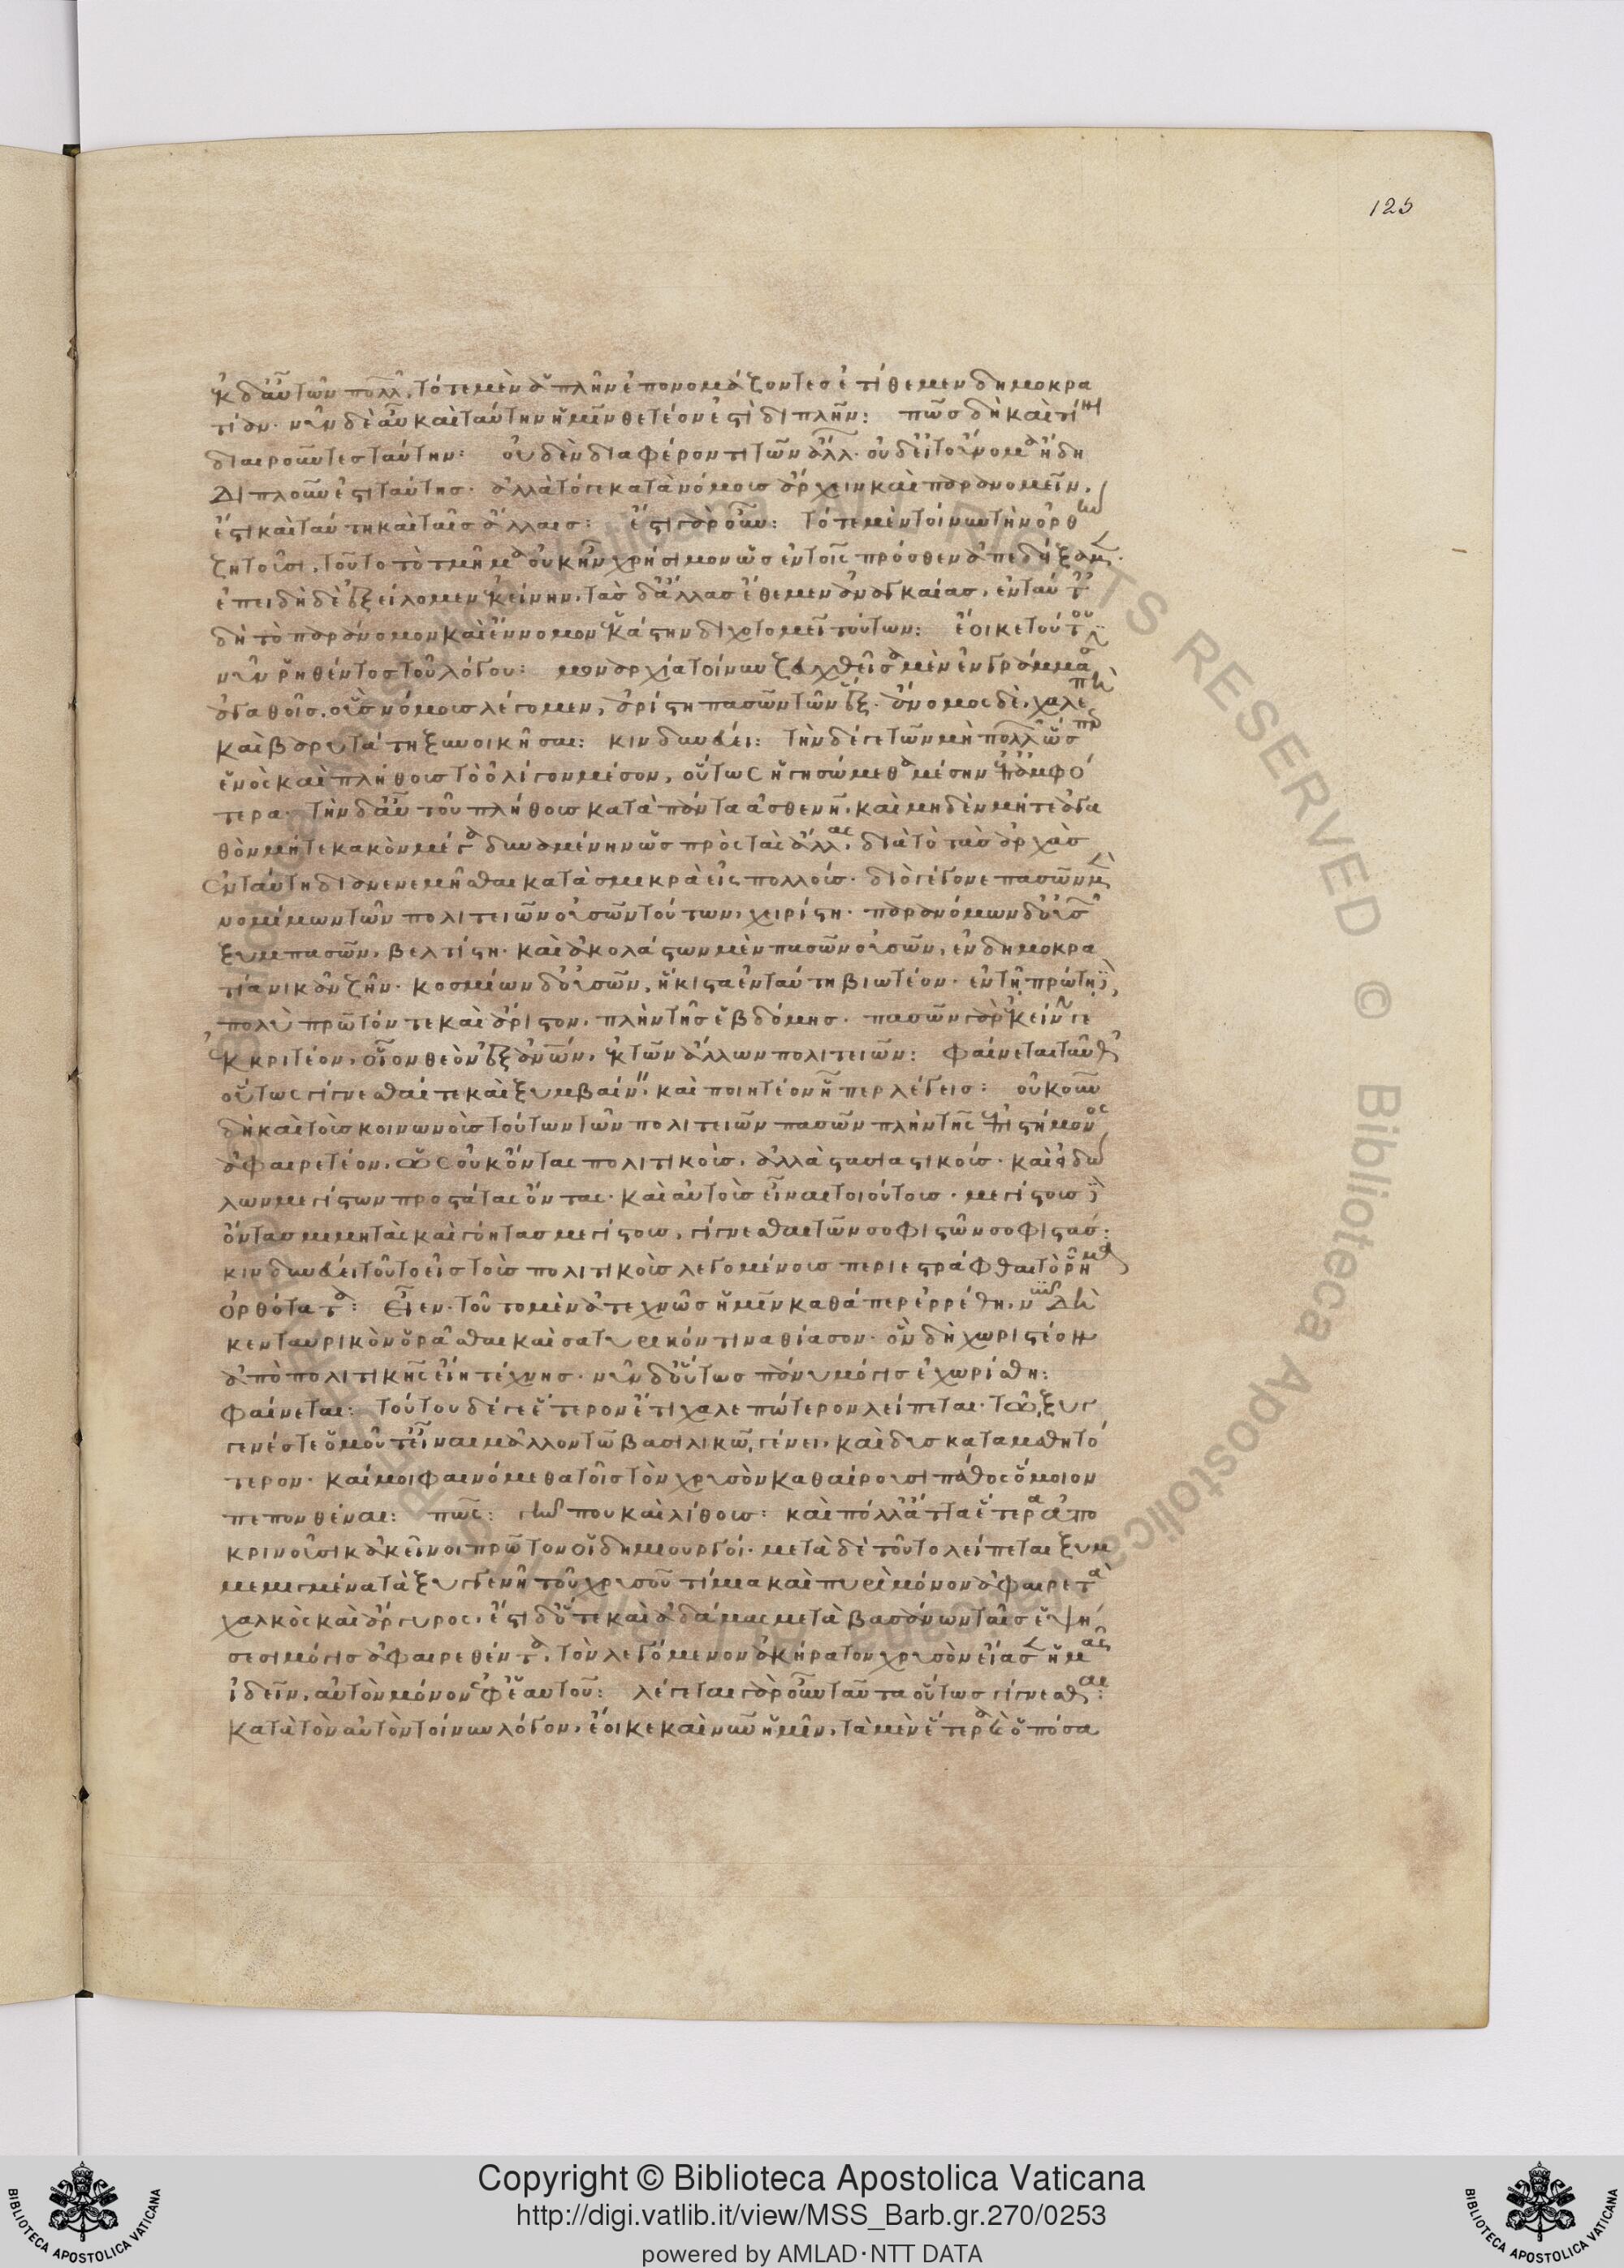 125
ἐκ δ' αὖ τῶν πολλῶν, τότε μὲν ἁπλῆν ἐπονομάζοντες ἐτίθεμεν δημοκρα
τίαν· νῦν δὲ αὖ καὶ ταύτην ἡμῖν θετέον ἐστὶ διπλῆν: πῶς δὴ καὶ τίνι
διαιροῦντες ταύτην: οὐδὲν διαφέροντι τῶν ἄλλων· οὐδ' εἰ τοὔνομα ἤδη
διπλοῦν ἐστι ταύτης· ἀλλὰ τό γε κατὰ νόμους ἄρχειν καὶ παρανομεῖν,
ἔστι καὶ ταύτῃ καὶ ταῖς ἄλλαις: ἔστι γὰρ οὖν: τότε μὲν τοίνυν τὴν ὀρθὴν
ζητοῦσι, τοῦτο τὸ τμῆμα οὐκ ἦν χρήσιμον ὡς ἐν τοῖς πρόσθεν ἀπεδείξαμεν·
ἐπειδὴ δὲ ἐξείλομεν ἐκείνην, τὰς δ' ἄλλας ἔθεμεν ἀναγκαίας, ἐν ταύταις
δὴ τὸ παράνομον καὶ ἔννομον ἑκάστην διχοτομεῖ τούτων: ἔοικε τούτου
νῦν ῥηθέντος τοῦ λόγου: μοναρχία τοίνυν ζευχθεῖσα μὲν ἐν γράμμασιν
ἀγαθοῖς, οὓς νόμους λέγομεν, ἀρίστη πασῶν τῶν ἕξ· ἄνομος δὲ, χαλεπὴ
καὶ βαρυτάτη ξυνοικῆσαι: κινδυνεύει: τὴν δέ γε τῶν μὴ πολλῶν ὥσπερ
ἑνὸς καὶ πλήθους τὸ ὀλίγον μέσον, οὕτως ἡγησώμεθα μέσην ἐπ' ἀμφό
τερα· τὴν δ' αὖ τοῦ πλήθους κατὰ πάντα ἀσθενῆ, καὶ μηδὲν μήτε ἀγα
θὸν μήτε κακὸν μέγα δυναμένην ὡς πρὸς τὰς ἄλλας, διὰ τὸ τὰς ἀρχὰς
ἐν ταύτῃ διανενεμῆσθαι κατὰ σμικρὰ εἰς πολλούς· διὸ γέγονε πασῶν μὲν
νομίμων τῶν πολιτειῶν οὐσῶν τούτων, χειρίστη· παρανόμων δ' οὐσῶν
ξυμπασῶν, βελτίστη· καὶ ἀκολάστων μὲν πασῶν οὐσῶν, ἐν δημοκρα
τίᾳ νικᾷ ζῆν· κοσμίων δ' οὐσῶν, ἥκιστα ἐν ταύτῃ βιωτέον· ἐν τῇ πρώτῃ δὲ
πολὺ πρῶτόν τε καὶ ἄριστον, πλὴν τῆς ἑβδόμης· πασῶν γὰρ ἐκείνην γε
ἐκκριτέον, οἷον θεὸν ἐξ ἀνθρώπων, ἐκ τῶν ἄλλων πολιτειῶν: φαίνεται ταῦθ'
οὕτως γίγνεσθαί τε καὶ ξυμβαίνειν, καὶ ποιητέον ᾗπερ λέγεις: οὐκοῦν
δὴ καὶ τοὺς κοινωνοὺς τούτων τῶν πολιτειῶν πασῶν πλὴν τῆς ἐπιστήμονος
ἀφαιρετέον, ὡς οὐκ ὄντας πολιτικοὺς, ἀλλὰ στασιαστικούς· καὶ εἰδώ
λων μεγίστων προστάτας ὄντας· καὶ αὐτοὺς εἶναι τοιούτους· μεγίστους δὲ
ὄντας μιμητὰς καὶ γόητας μεγίστους, γίγνεσθαι τῶν σοφιστῶν σοφιστάς:
κινδυνεύει τοῦτο εἰς τοὺς πολιτικοὺς λεγομένους περιεστράφθαι τὸ ῥῆμα
ὀρθότατα: εἶεν· τοῦτο μὲν ἀτεχνῶς ἡμῖν καθάπερ ἐρρέθη, νῦν δὴ
κενταυρικὸν ὁρᾶσθαι καὶ σατυρικόν τινα θίασον· ὃν δὴ χωριστέον
ἀπὸ πολιτικῆς εἴη τέχνης· νῦν δ' οὕτως πάνυ μόγις ἐχωρίσθη:
φαίνεται: τούτου δέ γε ἕτερον ἔτι χαλεπώτερον λείπεται· τῷ, ξυγ
γενές τε ὁμοῦ τ' εἶναι μᾶλλον τῷ βασιλικῷ γένει, καὶ δυσκαταμαθητό
τερον· καί μοι φαινόμεθα τοῖς τὸν χρυσὸν καθαίρουσι πάθος ὅμοιον
πεπονθέναι: πῶς: γῆν που καὶ λίθους: καὶ πόλλ' ἄττα ἕτερα ἀπο
κρίνουσι κἀκεῖνοι πρῶτον οἱ δημιουργοί· μετὰ δὲ τοῦτο λείπεται ξυμ
μεμιγμένα τὰ ξυγγενῆ τοῦ χρυσοῦ τίμια καὶ πυρὶ μόνον ἀφαιρετὰ
χαλκὸς καὶ ἄργυρος, ἔστι δ' ὅτε καὶ ἀδάμας μετὰ βασάνων ταῖς ἑψή
σεσι μόγις ἀφαιρεθέντα, τὸν λεγόμενον ἀκήρατον χρυσὸν εἴασεν ἡμᾶς
ἰδεῖν, αὐτὸν μόνον ἐφ' ἑαυτοῦ: λέγεται γὰρ οὖν ταῦτα οὕτως γίγνεσθαι:
κατὰ τὸν αὐτὸν τοίνυν λόγον, ἔοικε καὶ νῦν ἡμῖν, τὰ μὲν ἕτερα καὶ ὁπόσα
Copyright © Biblioteca Apostolica Vaticana
http://digi.vatlib.it/view/MSS_Barb.gr.270/0253
powered by AMLAD·NTT DATA